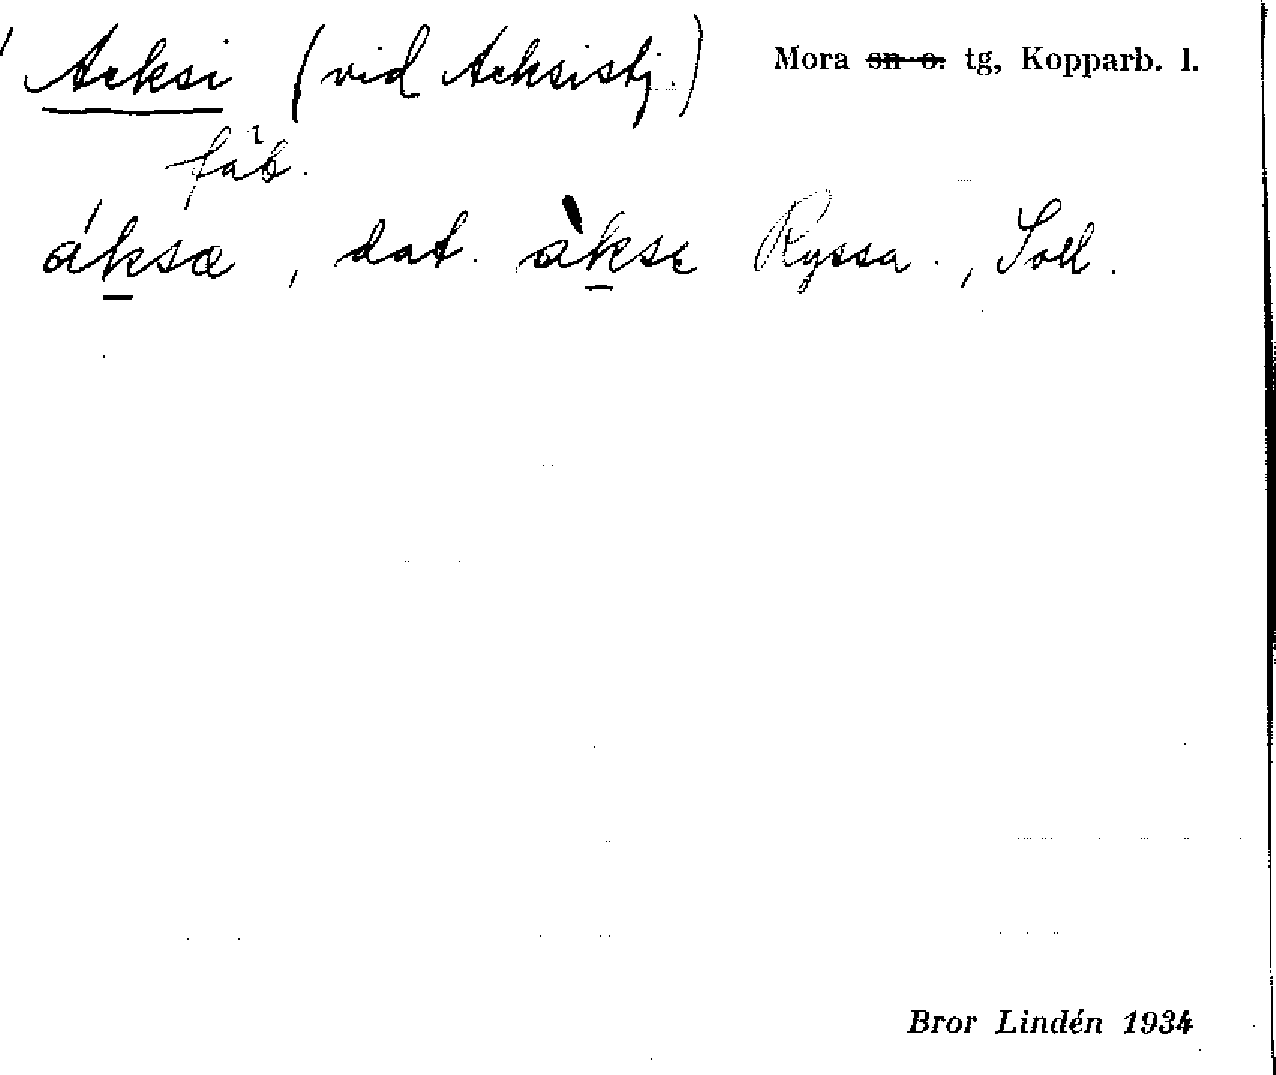 Acksi (vid Acksistj.) Mora sn o. tg, Kopparb. l.
fäb.
áksæ, dat. àksε Ryssa., Soll.
Bror Lindén 1934